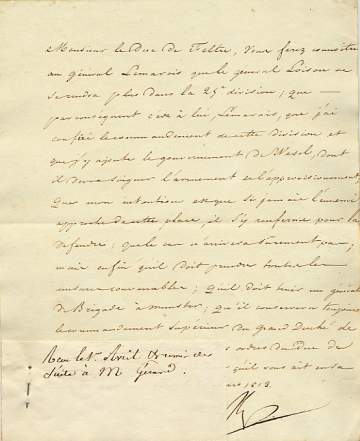 Monsieur le Duc de Feltre, Vous ferez connoître
au général Lemarois que le général Loison ne
se rendra plus dans la 25e division; que
par conséquent c'est à lui, Lemarois, que j'ai
confié le commandement de cette division et
que j'y ajoute le gouvernement de Wesel, dont
il devra soigner l'armement et l'approvisionnement,
Que mon intention est que si jamais l'ennemi
approche de cette place, il s'y renferme pour la
défendre; que le cas n'arrivera sûrement pas,
mais enfin qu'il doit prendre toutes les
mesures convenables; Qu'il doit tenir un général
de Brigade à Munster; Qu'il conservera toujours
le commandement supérieur du Grand Duché de
ordres du Duc de
qu'il vous ait en sa
1813.
Reçu le 1er Avril
Suite à M Gérard.